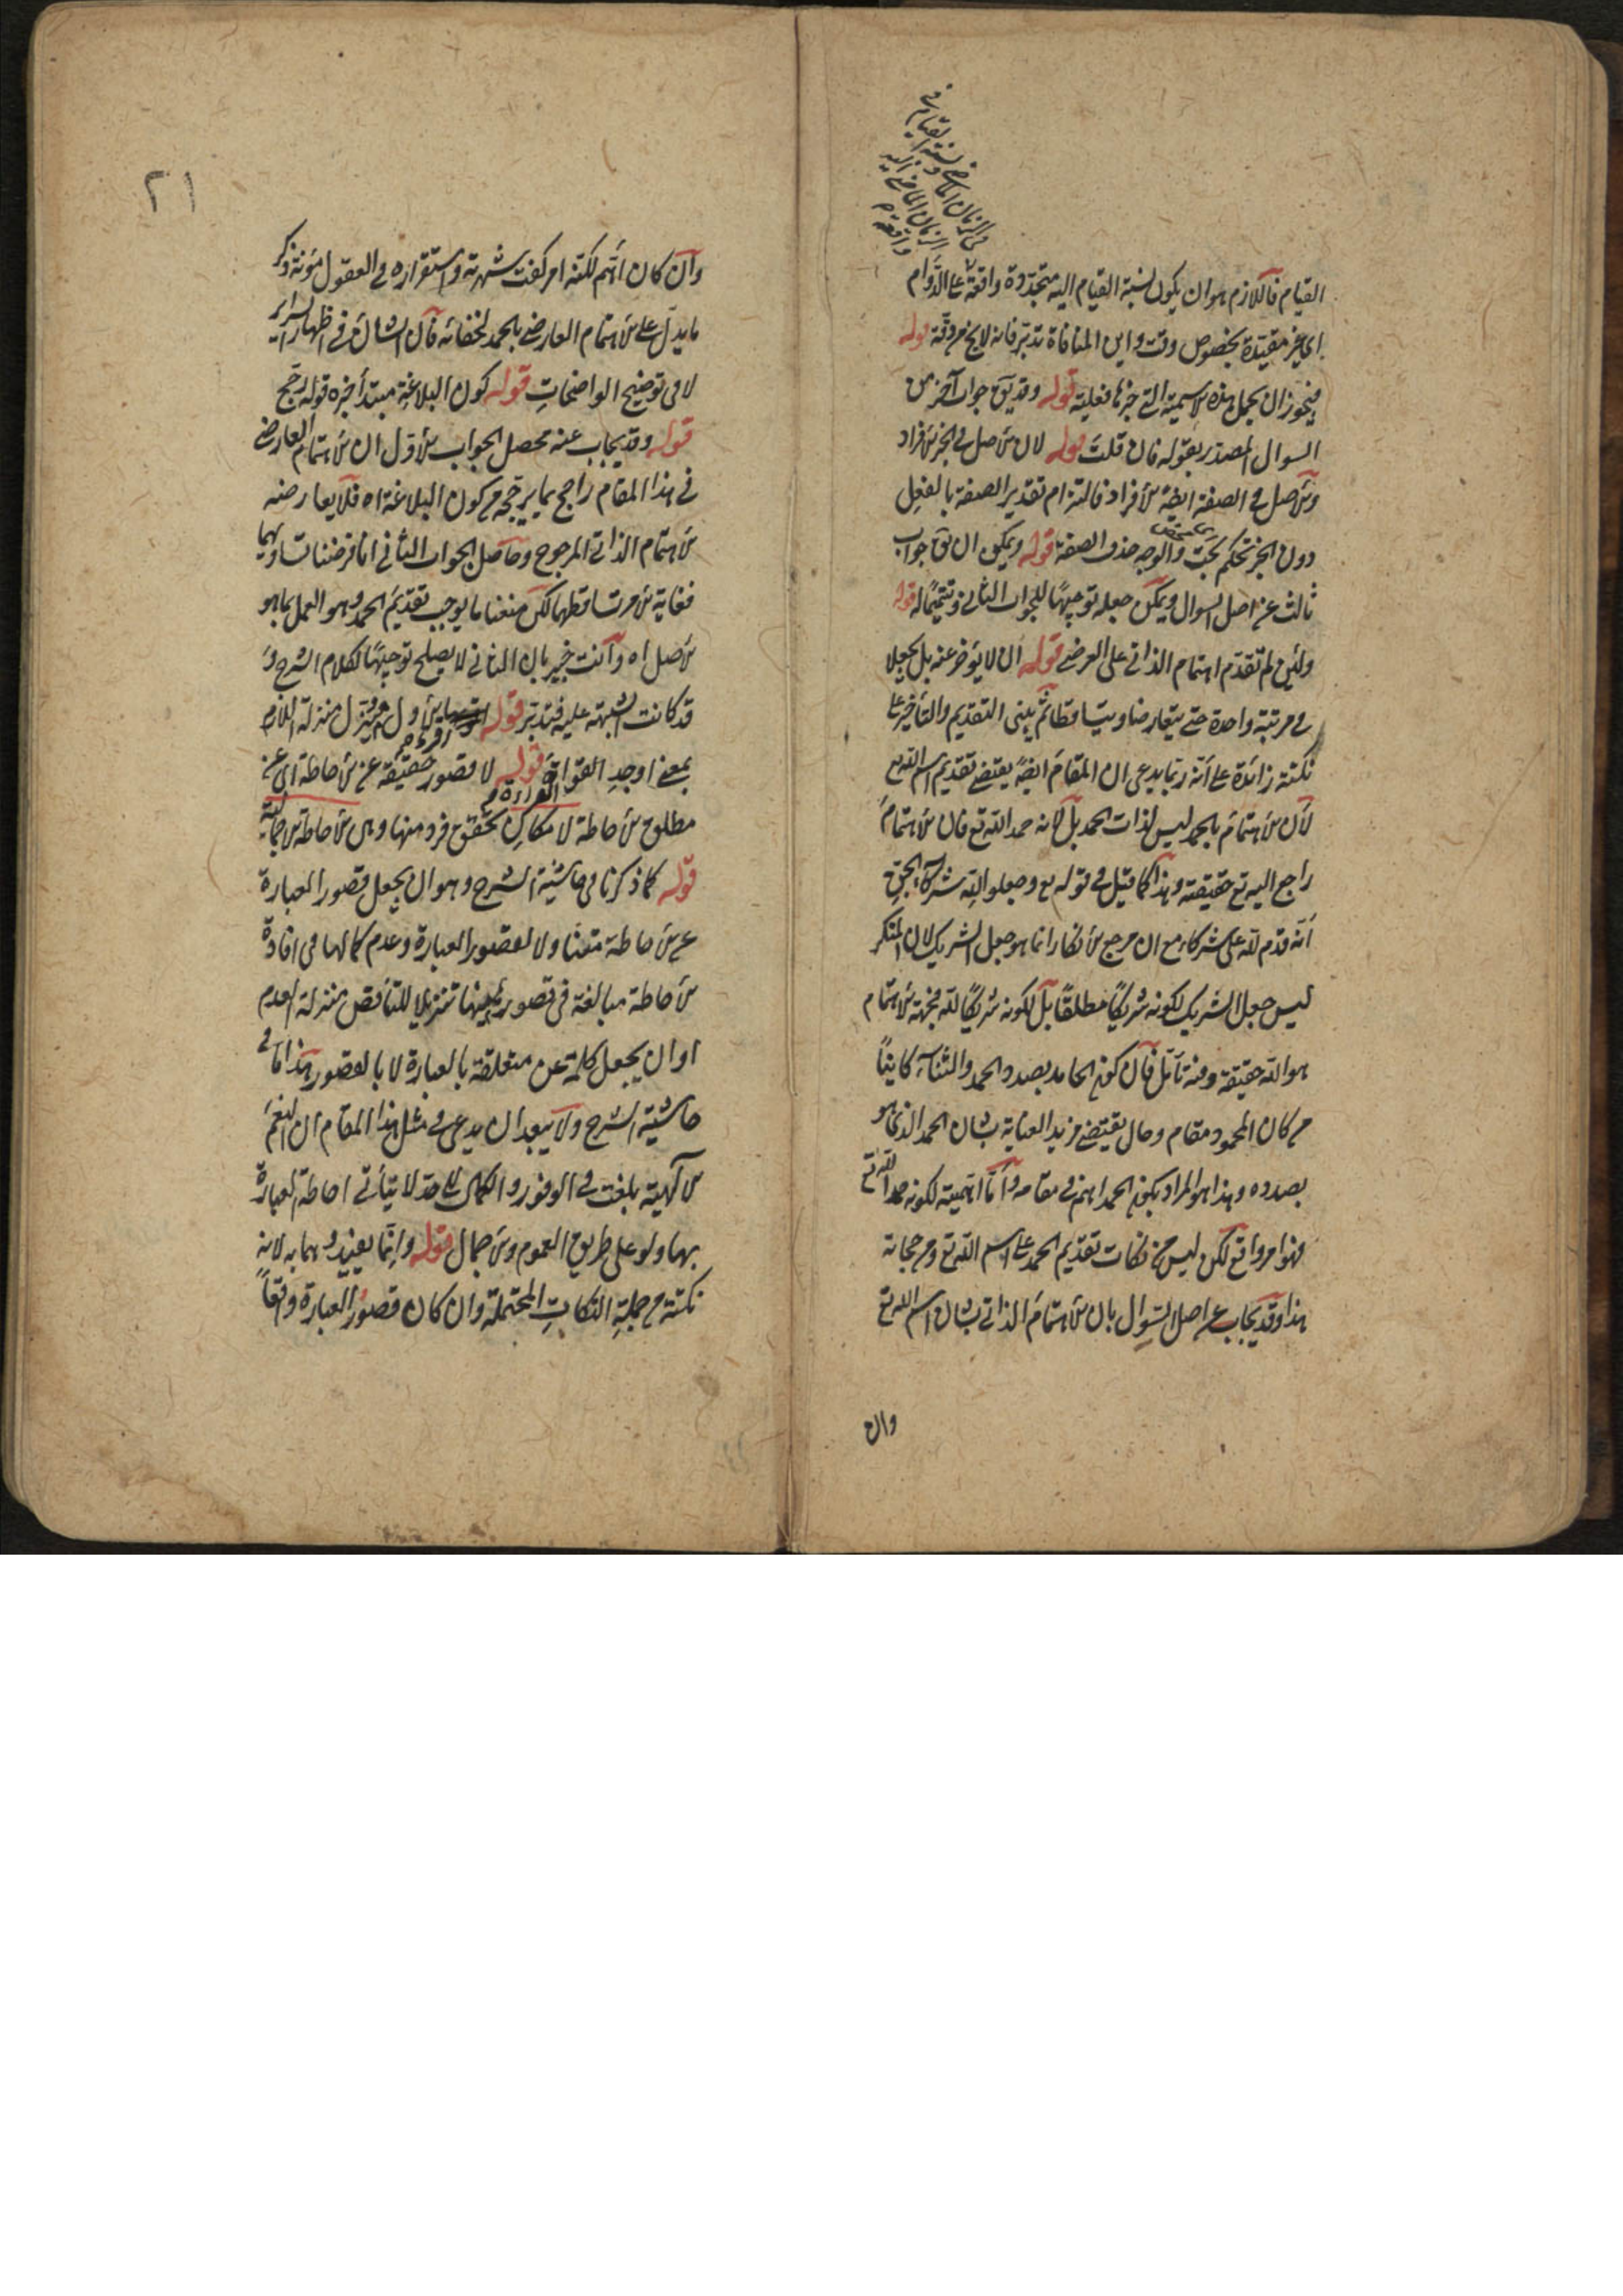 القيام فاللازم هو ان يكون نسبة القيام اليه متجددة واقعة على الدوام
اي غير مقيدة بخصوص وقت واين المنافاة تدبر فانه لا يخ عن دقة قوله
فيجوز ان يحمل هذه الاسمية التي خبرها فعلية قوله وقد يق جواب آخر عن
السوال المصدر بقوله فان قلت قوله لان الاصل في الخبر الافراد
والاصل في الصفة ايضا الافراد فالتزام تقدير الصفة بالفعل
دون الخبر تحكم بحت والوجه حذف الصفة قوله ويمكن ان يق جواب
ثالث عن اصل السوال ويمكن جعله توجيها للجواب الثاني وتتميما له قوله
ولئن لم تقدم اهتمام الذاتي على العرضي قوله ان لا يؤخر عنه بل يجعلا
في مرتبة واحدة حتى يتعارضا ويتساقطا ثم يبنى التقديم والتأخير على
نكتة زائدة على أنه ربما يدعى ان المقام ايضا يقتضي تقديم اسم الله تع
لأن الاهتمام بالحمد ليس لذات الحمد بل لانه حمد الله تع فان الاهتمام
راجع اليه تع حقيقة وهذا كما قيل في قوله تع وجعلوا لله شركاء الجن
أنه قدم لله على شركاء مع ان مرجع الانكار انما هو جعل الشريك لان المنكر
ليس جعل الشريك لكونه شريكا مطلقا بل لكونه شريكا لله فجهة الاهتمام
هو الله حقيقة وفيه تأمل فان كون الحامد بصدد الحمد والثناء كائنا
من كان المحمود مقام وحال يقتضي مزيد العناية بشان الحمد الذي هو
بصدده وهذا هو المراد بكون الحمد اهم في مقامه وأما اهمية لكونه حمد الله تع
فهو امر واقع لكن ليس من نكات تقديم الحمد على اسم الله تع ومرجحاته
هذا وقد يجاب عن اصل السؤال بان الاهتمام الذاتي بشان اسم الله تع
وان
٢١
وان كان اتم لكنه امر كفت شهرته واستقراره في العقول مؤنة ذكر
ما يدل على الاهتمام العارضي بالحمد لخفائه فان الشان في اظهار السراير
لا في توضيح الواضحات قوله كون البلاغة مبتدأ خبره قوله رجح
قوله وقد يجاب عنه محصل الجواب الاول ان الاهتمام العارضي
في هذا المقام راجح بما يرجحه من كون البلاغة اه فلا يعارضه
الاهتمام الذاتي المرجوح وحاصل الجواب الثاني انا فرضنا تساويهما
فغاية الامر تساقطهما لكن معنا ما يوجب تقديم الحمد وهو العمل بما هو
الاصل اه وأنت خبير بان الثاني لا يصلح توجيها لكلام الشرح و
قد كانت الشبهة عليه فتدبر قوله الاول منزل منزلة اللازم
بمعنى اوجد القراءة قوله لا قصور حقيقة عن الاحاطة اي عن
مطلق الاحاطة لامكان تحقق فرد منها وهي الاحاطة الاجمالية
قوله كما ذكرنا في حاشية الشرح وهو ان يجعل قصور العبارة
عن الاحاطة متعنا ولا لقصور العبارة وعدم كمالها في افادة
الاحاطة مبالغة في قصور تنزيلا للناقص منزلة العدم
او ان يجعل كلمة عن متعلقة بالعبارة لا بالقصور هذا ما في
حاشية الشرح ولا يبعد ان يدعى في مثل هذا المقام ان النعم
الالهية بلغت في الوفور والكمال الى حد لا يتأتى احاطة العبارة
بها ولو على طريق العموم والاجمال قوله وانما يفيد وهما به لانه
نكتة من جملة النكات المحتملة وان كان قصور العبارة واقعا